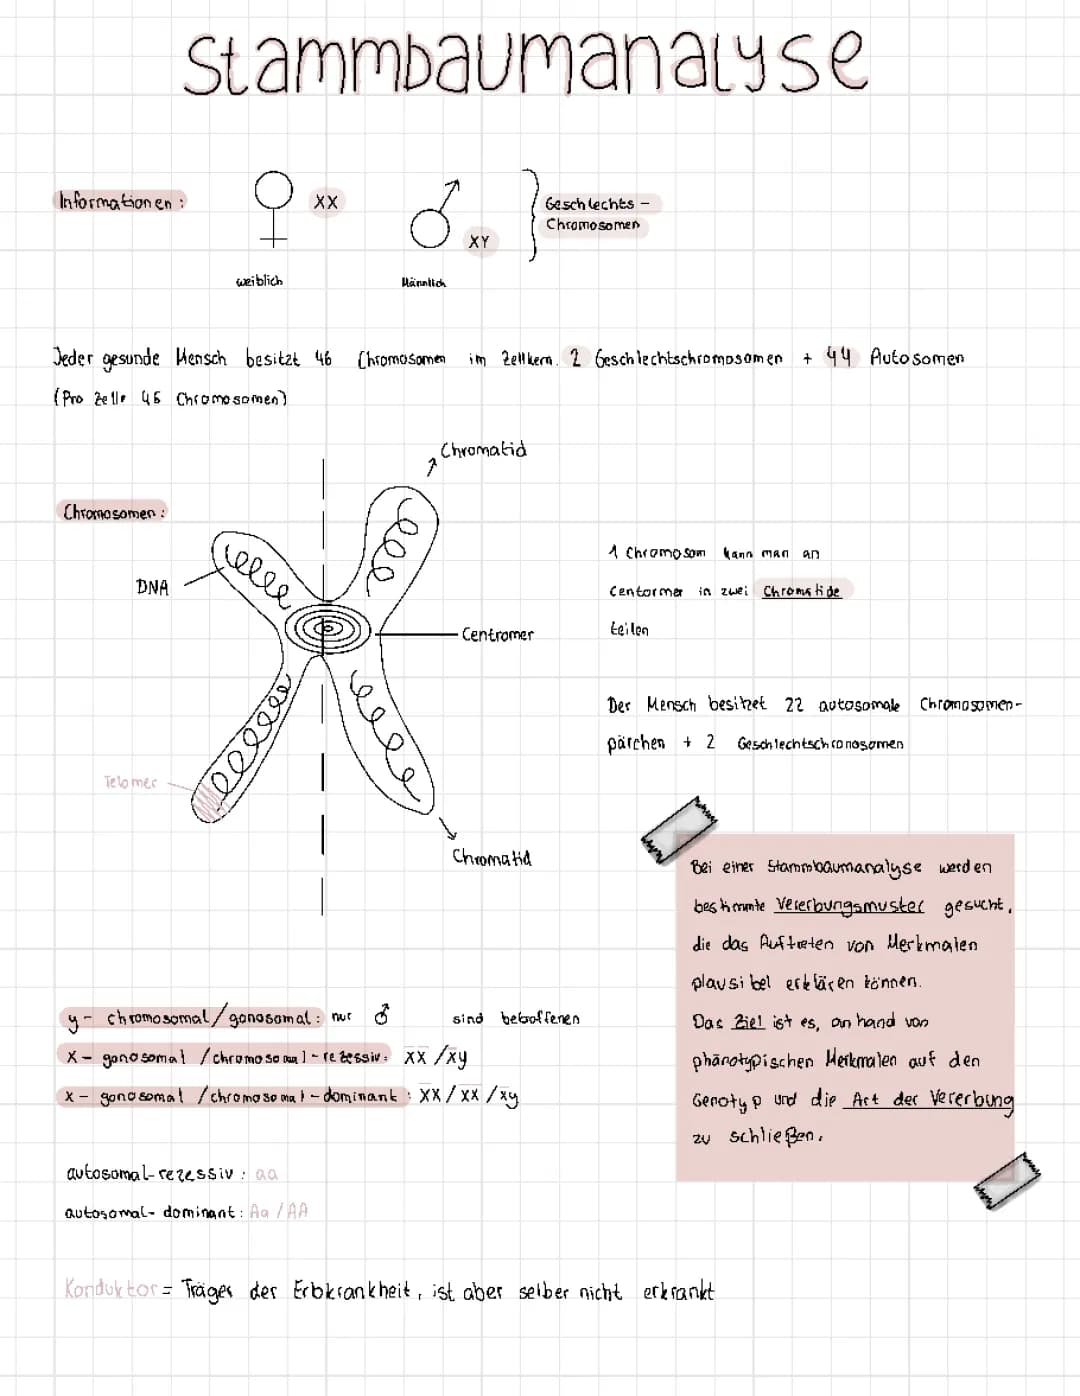 Stammbaumanalyse
Informationen :
XX
XY
Geschlechts -
Chromosomen
weiblich
Männlich
Jeder gesunde Mensch besitzt 46 Chromosomen im Zellkern. 2 Geschlechtschromosomen + 44 Autosomen
(Pro Zelle 46 Chromosomen)
Chromatid
Chromosomen :
DNA
Centromer
1 Chromosom kann man an
Centormer in zwei Chromatide
teilen
Der Mensch besitzet 22 autosomale Chromosomen-
pärchen + 2 Geschlechtschronosomen
Telomer
Chromatid
Bei einer Stammbaumanalyse werden
bestimmte Vererbungsmuster gesucht,
die das Auftreten von Merkmalen
plausibel erklären können.
Das Ziel ist es, an hand von
phänotypischen Merkmalen auf den
Genotyp und die Art der Vererbung
zu schließen.
y - chromosomal/gonosomal : nur ♂ sind betroffenen
X - gonosomal /chromosomal - rezessiv : XX /xy
X - gonosomal /chromosomal - dominant : XX / XX /xy
autosomal-rezessiv : aa
autosomal- dominant : Aa / AA
Konduktor = Träger der Erbkrankheit, ist aber selber nicht erkrankt